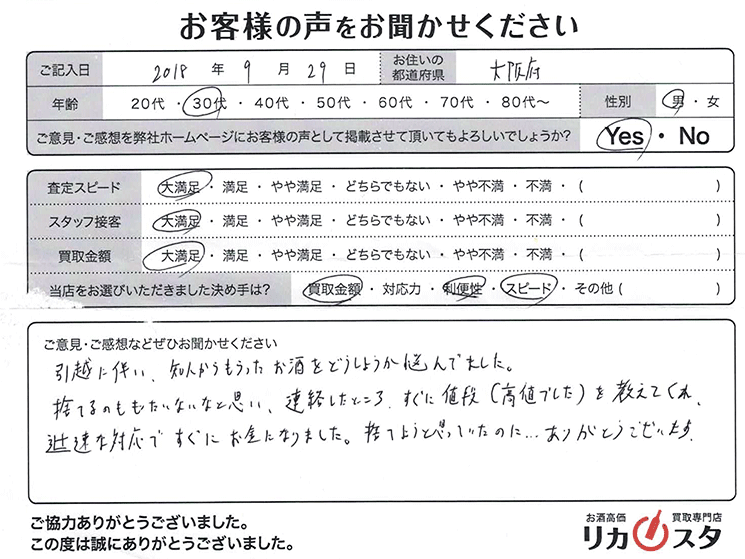 お客様の声をお聞かせください
ご記入日 2018 年 9 月 29 日 お住いの都道府県 大阪府
年齢 20代 ・ 30代 ・ 40代 ・ 50代 ・ 60代 ・ 70代 ・ 80代～ 性別 男 ・ 女
ご意見・ご感想を弊社ホームページにお客様の声として掲載させて頂いてもよろしいでしょうか? Yes ・ No
査定スピード 大満足 ・ 満足 ・ やや満足 ・ どちらでもない ・ やや不満 ・ 不満 ・ ( )
スタッフ接客 大満足 ・ 満足 ・ やや満足 ・ どちらでもない ・ やや不満 ・ 不満 ・ ( )
買取金額 大満足 ・ 満足 ・ やや満足 ・ どちらでもない ・ やや不満 ・ 不満 ・ ( )
当店をお選びいただきました決め手は? 買取金額 ・ 対応力 ・ 利便性 ・ スピード ・ その他 ( )
ご意見・ご感想などぜひお聞かせください
引越に伴い、知人からもらったお酒をどうしようか悩んでました。
捨てるのももたいないなと思い、連絡したところ、すぐに値段（高値でした）を教えてくれ、
迅速な対応ですぐにお金になりました。捨てようと思っていたのに…ありがとうございます。
ご協力ありがとうございました。
この度は誠にありがとうございました。
お酒高価 買取専門店
リカスタ